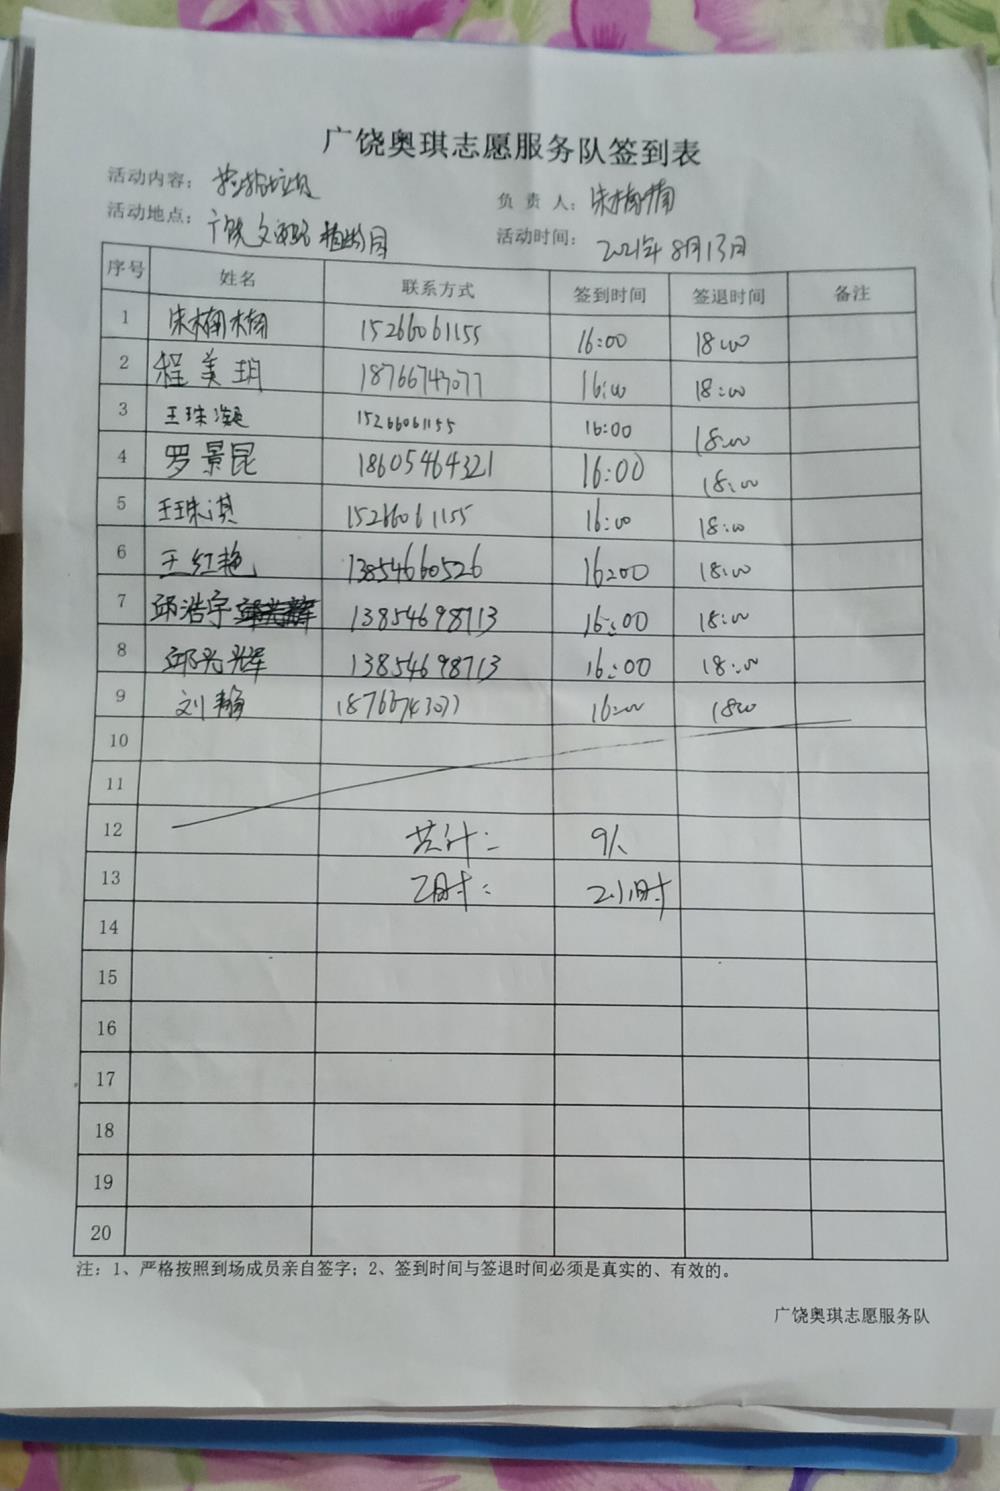 广饶奥琪志愿服务队签到表
活动内容： 捡拾垃圾 负 责 人： 宋楠楠
活动地点： 广饶 植物园 活动时间： 2021年8月13日
序号 姓名 联系方式 签到时间 签退时间 备注
1 宋楠楠 15266061155 16:00 18:00
2 程美玥 18766743077 16:00 18:00
3 王珠凝 15266061155 16:00 18:00
4 罗景昆 18605464321 16:00 18:00
5 王珠淇 15266061155 16:00 18:00
6 王红艳 13854660526 16:00 18:00
7 邱浩宇 13854698713 16:00 18:00
8 邱光辉 13854698713 16:00 18:00
9 刘翰 18766743077 16:00 18:00
10
11
12 共计： 9人
13 时： 2小时
14
15
16
17
18
19
20
注：1、严格按照到场成员亲自签字；2、签到时间与签退时间必须是真实的、有效的。
广饶奥琪志愿服务队